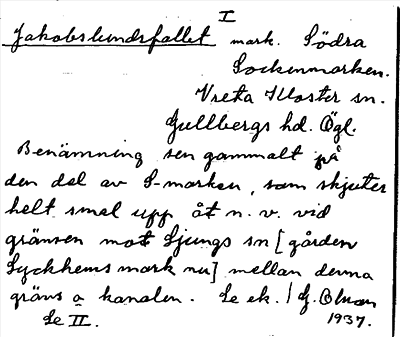 I
Jakobslundsfallet mark. Södra
Sockenmarken.
Vreta Kloster sn.
Gullbergs hd. Ögl.
Benämning sen gammalt på
den del av S-marken, som skjuter
helt smal upp åt n. v. vid
gränsen mot Ljungs sn [gården
Lyckhems mark nu] mellan denna
gräns o kanalen. Se ek. / G. Olson
Se II. 1937.